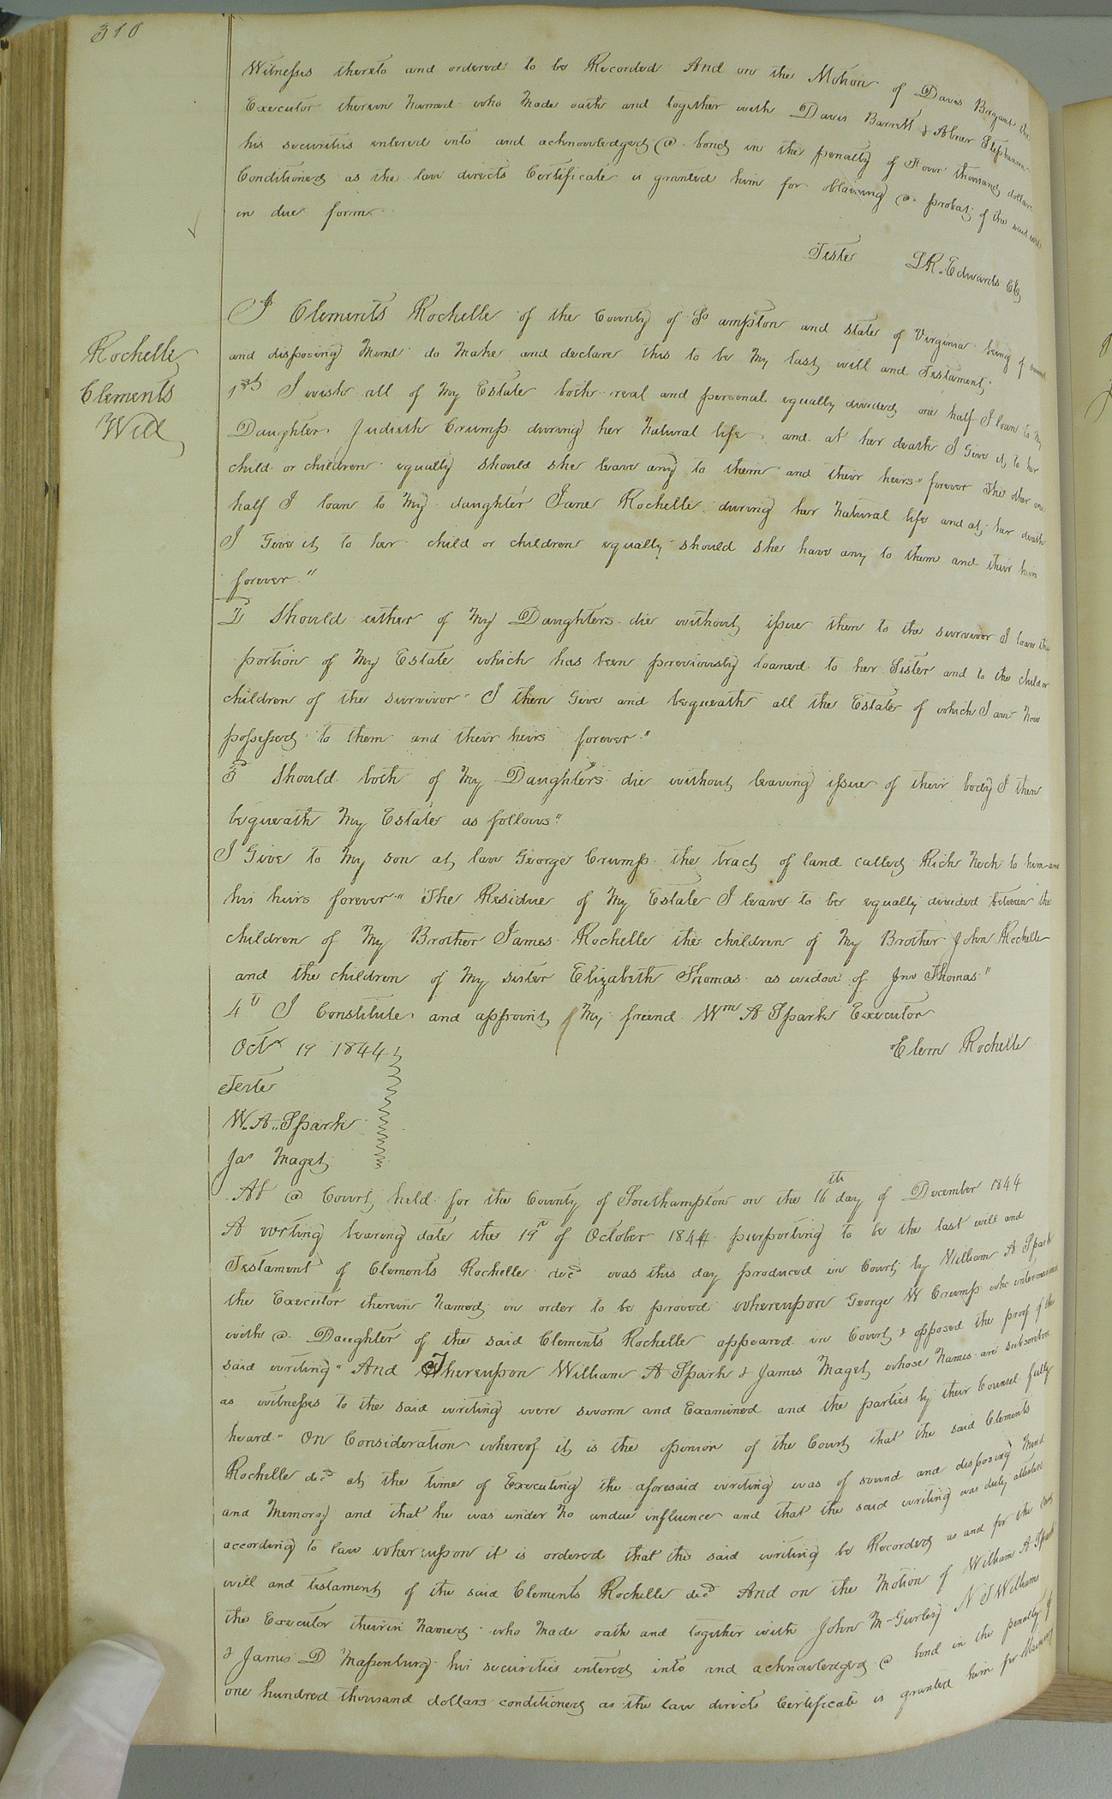 310
Witnesses thereto and ordered to be Recorded And on the Motion of Davis Bryant the
Executor therein Named who Made oath and together with Davis Barrett & Abner Stephenson
his securities entered into and acknowledged a bond in the penalty of Four thousand dollars
Conditioned as the law directs Certificate is granted him for obtaining a probat of the said will
in due form
Teste L R. Edwards Clk
Rochelle
Clements
Will
I Clements Rochelle of the County of So ampton and state of Virginia being of sound
and disposing Mind do Make and declare this to be My last will and Testament
1st I wish all of My Estate both real and personal equally divided one half I loan to My
Daughter Judieth Crump during her Natural life and at her death I Give it to her
child or children equally should she leave any to them and their heirs" forever The other one
half I loan to My daughter Jane Rochelle during her Natural life and at her death
I Give it to her child or children equally should she have any to them and their heirs
forever"
2 Should either of My Daughters die without issue then to the survivor I loan the
portion of My Estate which has been previously loaned to her Sister and to the child or
children of the survivor I then Give and bequeath all the Estate of which I am Now
possessed to them and their heirs forever"
3 Should both of My Daughters die without leaving issue of their body I then
bequeath My Estate as follows"
I Give to My son at law George Crump the tract of land called Rich Neck to him and
his heirs forever" The Residue of My Estate I leave to be equally divided between the
children of My Brother James Rochelle the children of My Brother John Rochelle
and the children of My sister Elizabeth Thomas as widow of Jno Thomas"
4th I Constitute and appoint My freind Wm A Spark Executor
Octr 19 1844 Clem Rochelle
Teste
W. A. Spark
Jas Maget
At a Court held for the County of Southampton on the 16th day of December 1844
A writing bearing date the 19th of October 1844 purporting to be the last will and
Testament of Clements Rochelle decd was this day produced in Court by William A Spark
the Executor therein Named in order to be proved whereupon George W Crump who intermarried
with a Daughter of the said Clements Rochelle appeared in Court & opposed the proof of the
said writing" And Thereupon William A Spark & James Maget whose Names are subscribed
as witnesses to the said writing were sworn and Examined and the parties by their Counsel fully
heard" On Consideration whereof it is the opinion of the Court that the said Clements
Rochelle decd at the time of Executing the aforesaid writing was of sound and disposing Mind
and Memory and that he was under No undue influence and that the said writing was duly attested
according to law whereupon it is ordered that the said writing be Recorded as and for the last
will and testament of the said Clements Rochelle decd And on the Motion of William A Spark
the Executor therein Named who Made oath and together with John M Gurley N S Williams
& James D Massenburg his securities entered into and acknowledged a bond in the penalty of
one hundred thousand dollars conditioned as the law directs Certificate is granted him for